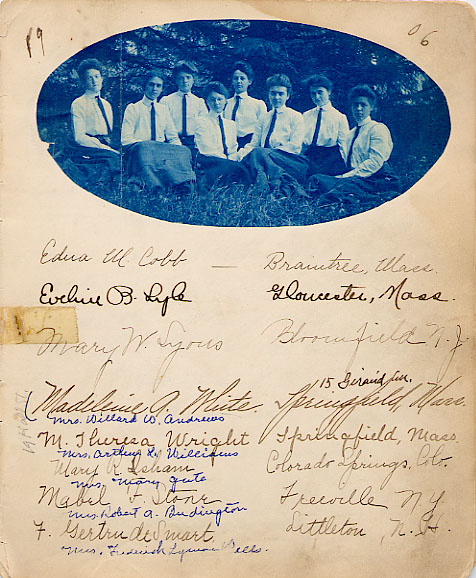 19 06
Edna M. Cobb — Braintree, Mass.
Eveline B. Lyle Gloucester, Mass.
Mary W. Lyons Bloomfield N.J.
15 Girard Ave.
Madeleine A. White. Springfield, Mass.
Mrs. Willard W. Andrews
M. Theresa Wright Springfield, Mass.
Mrs. Arthur H. Williams
Mary R. Isham Colorado Springs, Colo.
Mrs. Mary
Mabel F. Stone Freeville N.Y.
Mrs. Robert A. Budington
F. Gertrude Smart. Littleton, N.H.
Mrs. Frederick Lyman Wells.